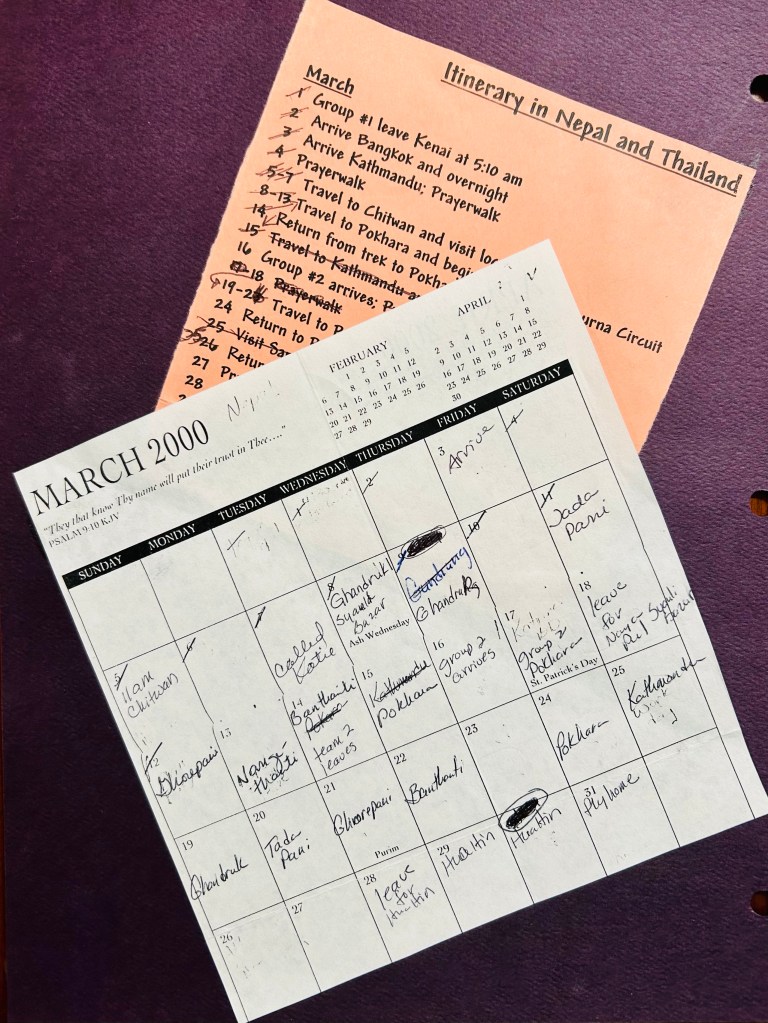 Itinerary in Nepal and Thailand
March
1 Group #1 leave Kenai at 5:10 am
2 Arrive Bangkok and overnight
3 Arrive Kathmandu; Prayerwalk
4 Prayerwalk
5-7 Travel to Chitwan and visit loc
8-13 Travel to Pokhara and begi
urna Circuit
14 Return from trek to Pokha
15 Travel to Kathmandu a
16 Group #2 arrives; P
18 Prayerwalk
19-2 Travel to P
24 Return to P
25 Visit Sar
26 Retur
27 Pr
28
MARCH 2000
Nepal
"They that know Thy name will put their trust in Thee...."
PSALM 9-10 KJV
FEBRUARY
1 2 3 4 5
6 7 8 9 10 11 12
13 14 15 16 17 18 19
20 21 22 23 24 25 26
27 28 29
APRIL
1
2 3 4 5 6 7 8
9 10 11 12 13 14 15
16 17 18 19 20 21 22
23 24 25 26 27 28 29
30
SUNDAY MONDAY TUESDAY WEDNESDAY THURSDAY FRIDAY SATURDAY
1
2
3 Arrive
4
5 11am Chitwan
6
7 called Katie
8 Ghandruk Syauld Bazar
Ash Wednesday
9 Gundrung Ghandruk
10
11 Tada Pani
12 Ghorepani
13 Nang thati
14 Banthanti Pokara team 2 leaves
15 Kathmandu Pokhara
16 group 2 arrives
17 Group 2 Pokhara
St. Patrick's Day
18 leave for Naya Pul Syauli Bazar
19 Ghandruk
20 Tada Pani
21 Ghorepani
Purim
22 Banthanti
23
24 Pokhara
25 Kathmandu
26
27
28 leave for Huahin
29 Huahin
Huahin
31 Fly home